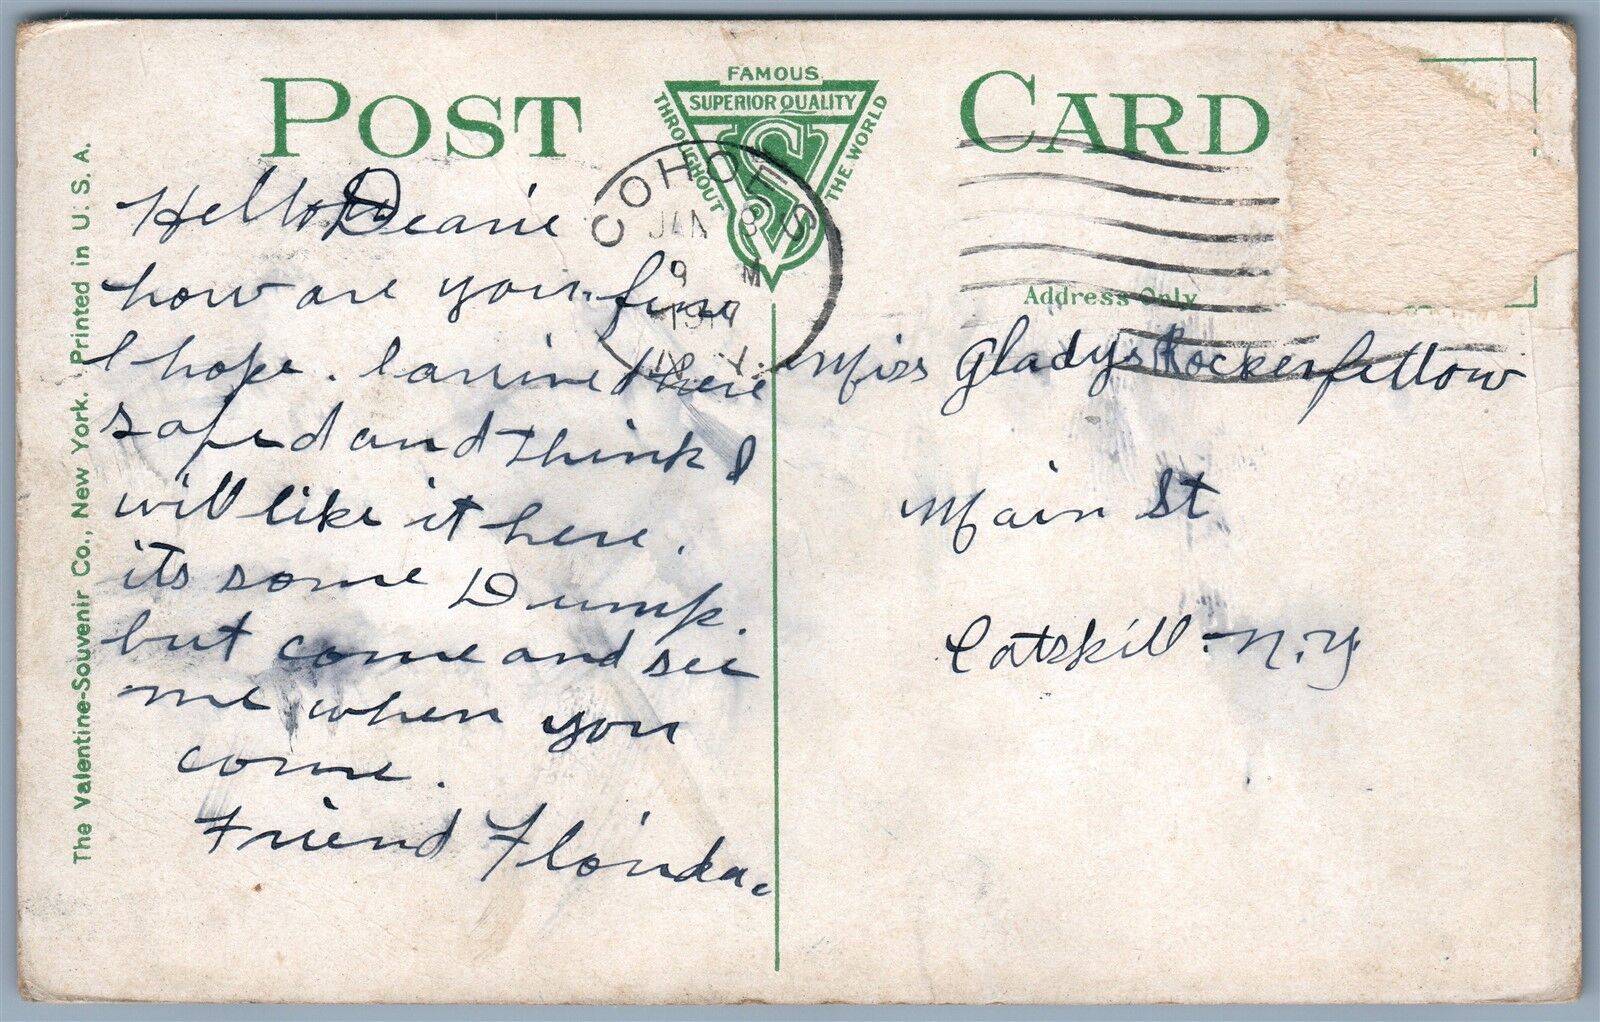 POST CARD
FAMOUS
THROUGHOUT
THE WORLD
SUPERIOR QUALITY
COHOES
JAN 8
9 M
191
N.Y.
Address Only
The Valentine-Souvenir Co., New York. Printed in U. S. A.
Hello Dearie
how are you. fine
I hope. I arrived here
safed and think I
will like it here.
its some Dump.
but come and see
me when you
come.
Friend Florida.
Miss Gladys Rockerfellow
Main St
Catskill. N.Y